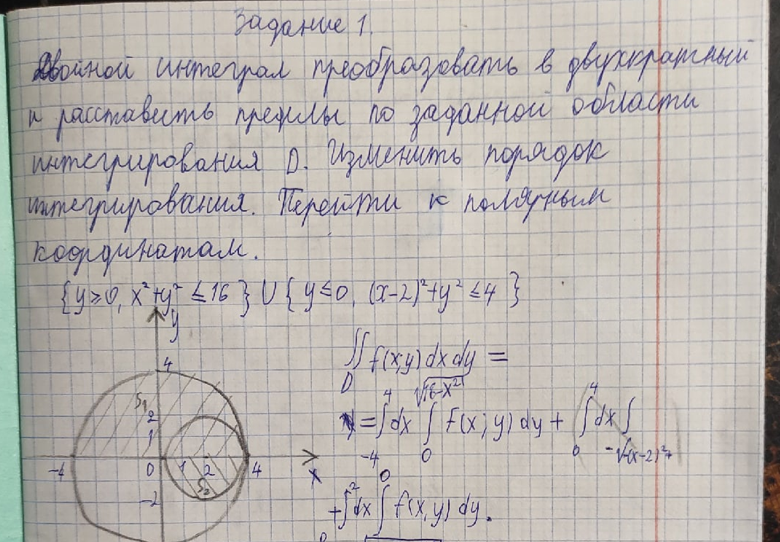 Задание 1.
Двойной интеграл преобразовать в двухкратный
и расставить пределы по заданной области
интегрирования D. Изменить порядок
интегрирования. Перейти к полярным
координатам.
{y≥0, x²+y² ≤16} U { y≤0, (x-2)²+y² ≤4 }
y
4
S₁
2
1
-4 0 1 2 4 x
S₂
-2
∬ f(x,y) dx dy =
D
4 √16-x² 4
= ∫ dx ∫ f(x; y) dy + ∫ dx ∫
-4 0 0 -√-(x-2)²+
2 0
+ ∫ dx ∫ f(x, y) dy.
0